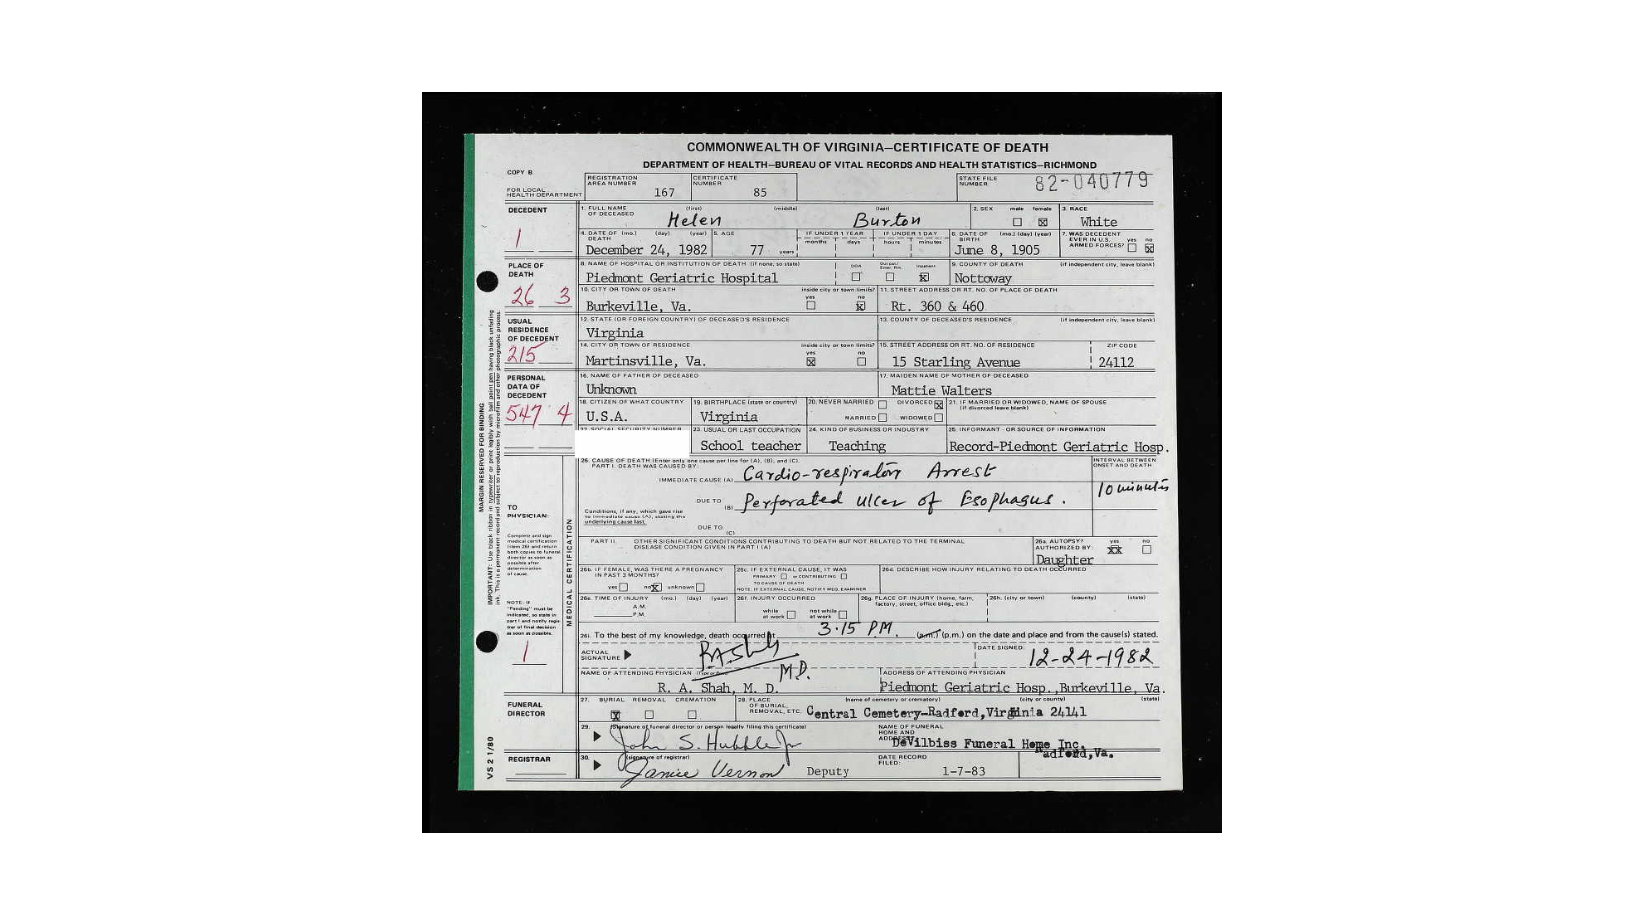 COMMONWEALTH OF VIRGINIA—CERTIFICATE OF DEATH
DEPARTMENT OF HEALTH—BUREAU OF VITAL RECORDS AND HEALTH STATISTICS—RICHMOND
COPY B
FOR LOCAL HEALTH DEPARTMENT
REGISTRATION AREA NUMBER 167
CERTIFICATE NUMBER 85
STATE FILE NUMBER 82-040779
DECEDENT
1
1. FULL NAME OF DECEASED (first) (middle) (last)
Helen Burton
2. SEX male female
3. RACE
White
4. DATE OF DEATH (mo.) (day) (year)
December 24, 1982
5. AGE
77 years
IF UNDER 1 YEAR months days
IF UNDER 1 DAY hours minutes
6. DATE OF BIRTH (mo.) (day) (year)
June 8, 1905
7. WAS DECEDENT EVER IN U.S. ARMED FORCES? yes no
PLACE OF DEATH
26 3
8. NAME OF HOSPITAL OR INSTITUTION OF DEATH (if none, so state)
Piedmont Geriatric Hospital
DOA Inpatient
9. COUNTY OF DEATH (if independent city, leave blank)
Nottoway
10. CITY OR TOWN OF DEATH inside city or town limits? yes no
Burkeville, Va.
11. STREET ADDRESS OR RT. NO. OF PLACE OF DEATH
Rt. 360 & 460
USUAL RESIDENCE OF DECEDENT
215
12. STATE (OR FOREIGN COUNTRY) OF DECEASED'S RESIDENCE
Virginia
13. COUNTY OF DECEASED'S RESIDENCE (if independent city, leave blank)
14. CITY OR TOWN OF RESIDENCE inside city or town limits? yes no
Martinsville, Va.
15. STREET ADDRESS OR RT. NO. OF RESIDENCE ZIP CODE
15 Starling Avenue 24112
PERSONAL DATA OF DECEDENT
547 4
16. NAME OF FATHER OF DECEASED
Unknown
17. MAIDEN NAME OF MOTHER OF DECEASED
Mattie Walters
18. CITIZEN OF WHAT COUNTRY
U.S.A.
19. BIRTHPLACE (state or country)
Virginia
20. NEVER MARRIED DIVORCED
MARRIED WIDOWED
21. IF MARRIED OR WIDOWED, NAME OF SPOUSE (if divorced leave blank)
SOCIAL SECURITY NUMBER
23. USUAL OR LAST OCCUPATION
School teacher
24. KIND OF BUSINESS OR INDUSTRY
Teaching
25. INFORMANT - OR SOURCE OF INFORMATION
Record-Piedmont Geriatric Hosp.
MARGIN RESERVED FOR BINDING
TO PHYSICIAN:
Complete and sign medical certification (item 26) and return both copies to funeral director as soon as possible after determination of cause.
NOTE: If "Pending" must be indicated, so state in part I and notify registrar of final decision as soon as possible.
1
MEDICAL CERTIFICATION
26. CAUSE OF DEATH (Enter only one cause per line for (A), (B), and (C).
PART I. DEATH WAS CAUSED BY:
INTERVAL BETWEEN ONSET AND DEATH
IMMEDIATE CAUSE (A) Cardio-respiratory Arrest
10 minutes
DUE TO (B) Perforated ulcer of Esophagus.
Conditions, if any, which gave rise to immediate cause (A), stating the underlying cause last.
DUE TO (C)
PART II. OTHER SIGNIFICANT CONDITIONS CONTRIBUTING TO DEATH BUT NOT RELATED TO THE TERMINAL DISEASE CONDITION GIVEN IN PART I (A)
26a. AUTOPSY? yes no
AUTHORIZED BY:
Daughter
26b. IF FEMALE, WAS THERE A PREGNANCY IN PAST 3 MONTHS?
yes no unknown
26c. IF EXTERNAL CAUSE, IT WAS
PRIMARY or CONTRIBUTING TO CAUSE OF DEATH
NOTE: IF EXTERNAL CAUSE, NOTIFY MED. EXAMINER
26d. DESCRIBE HOW INJURY RELATING TO DEATH OCCURRED
26e. TIME OF INJURY (mo.) (day) (year)
A.M.
P.M.
26f. INJURY OCCURRED
while at work not while at work
26g. PLACE OF INJURY (home, farm, factory, street, office bldg., etc.)
26h. (city or town) (county) (state)
26i. To the best of my knowledge, death occurred at 3.15 P.M. (a.m.) (p.m.) on the date and place and from the cause(s) stated.
ACTUAL SIGNATURE RAShah M.D.
DATE SIGNED: 12-24-1982
NAME OF ATTENDING PHYSICIAN
R. A. Shah, M. D.
ADDRESS OF ATTENDING PHYSICIAN
Piedmont Geriatric Hosp.,Burkeville, Va.
FUNERAL DIRECTOR
27. BURIAL REMOVAL CREMATION
28. PLACE OF BURIAL, REMOVAL, ETC. (name of cemetery or crematory) (city or county) (state)
Central Cemetery-Radford,Virginia 24141
29. (signature of funeral director or person legally filing this certificate)
John S. Hubble Jr
NAME OF FUNERAL HOME AND ADDRESS
DeVilbiss Funeral Home Inc.
adford,Va.
REGISTRAR
30. (signature of registrar)
Janice Vernon Deputy
DATE RECORD FILED: 1-7-83
VS 2 1/80